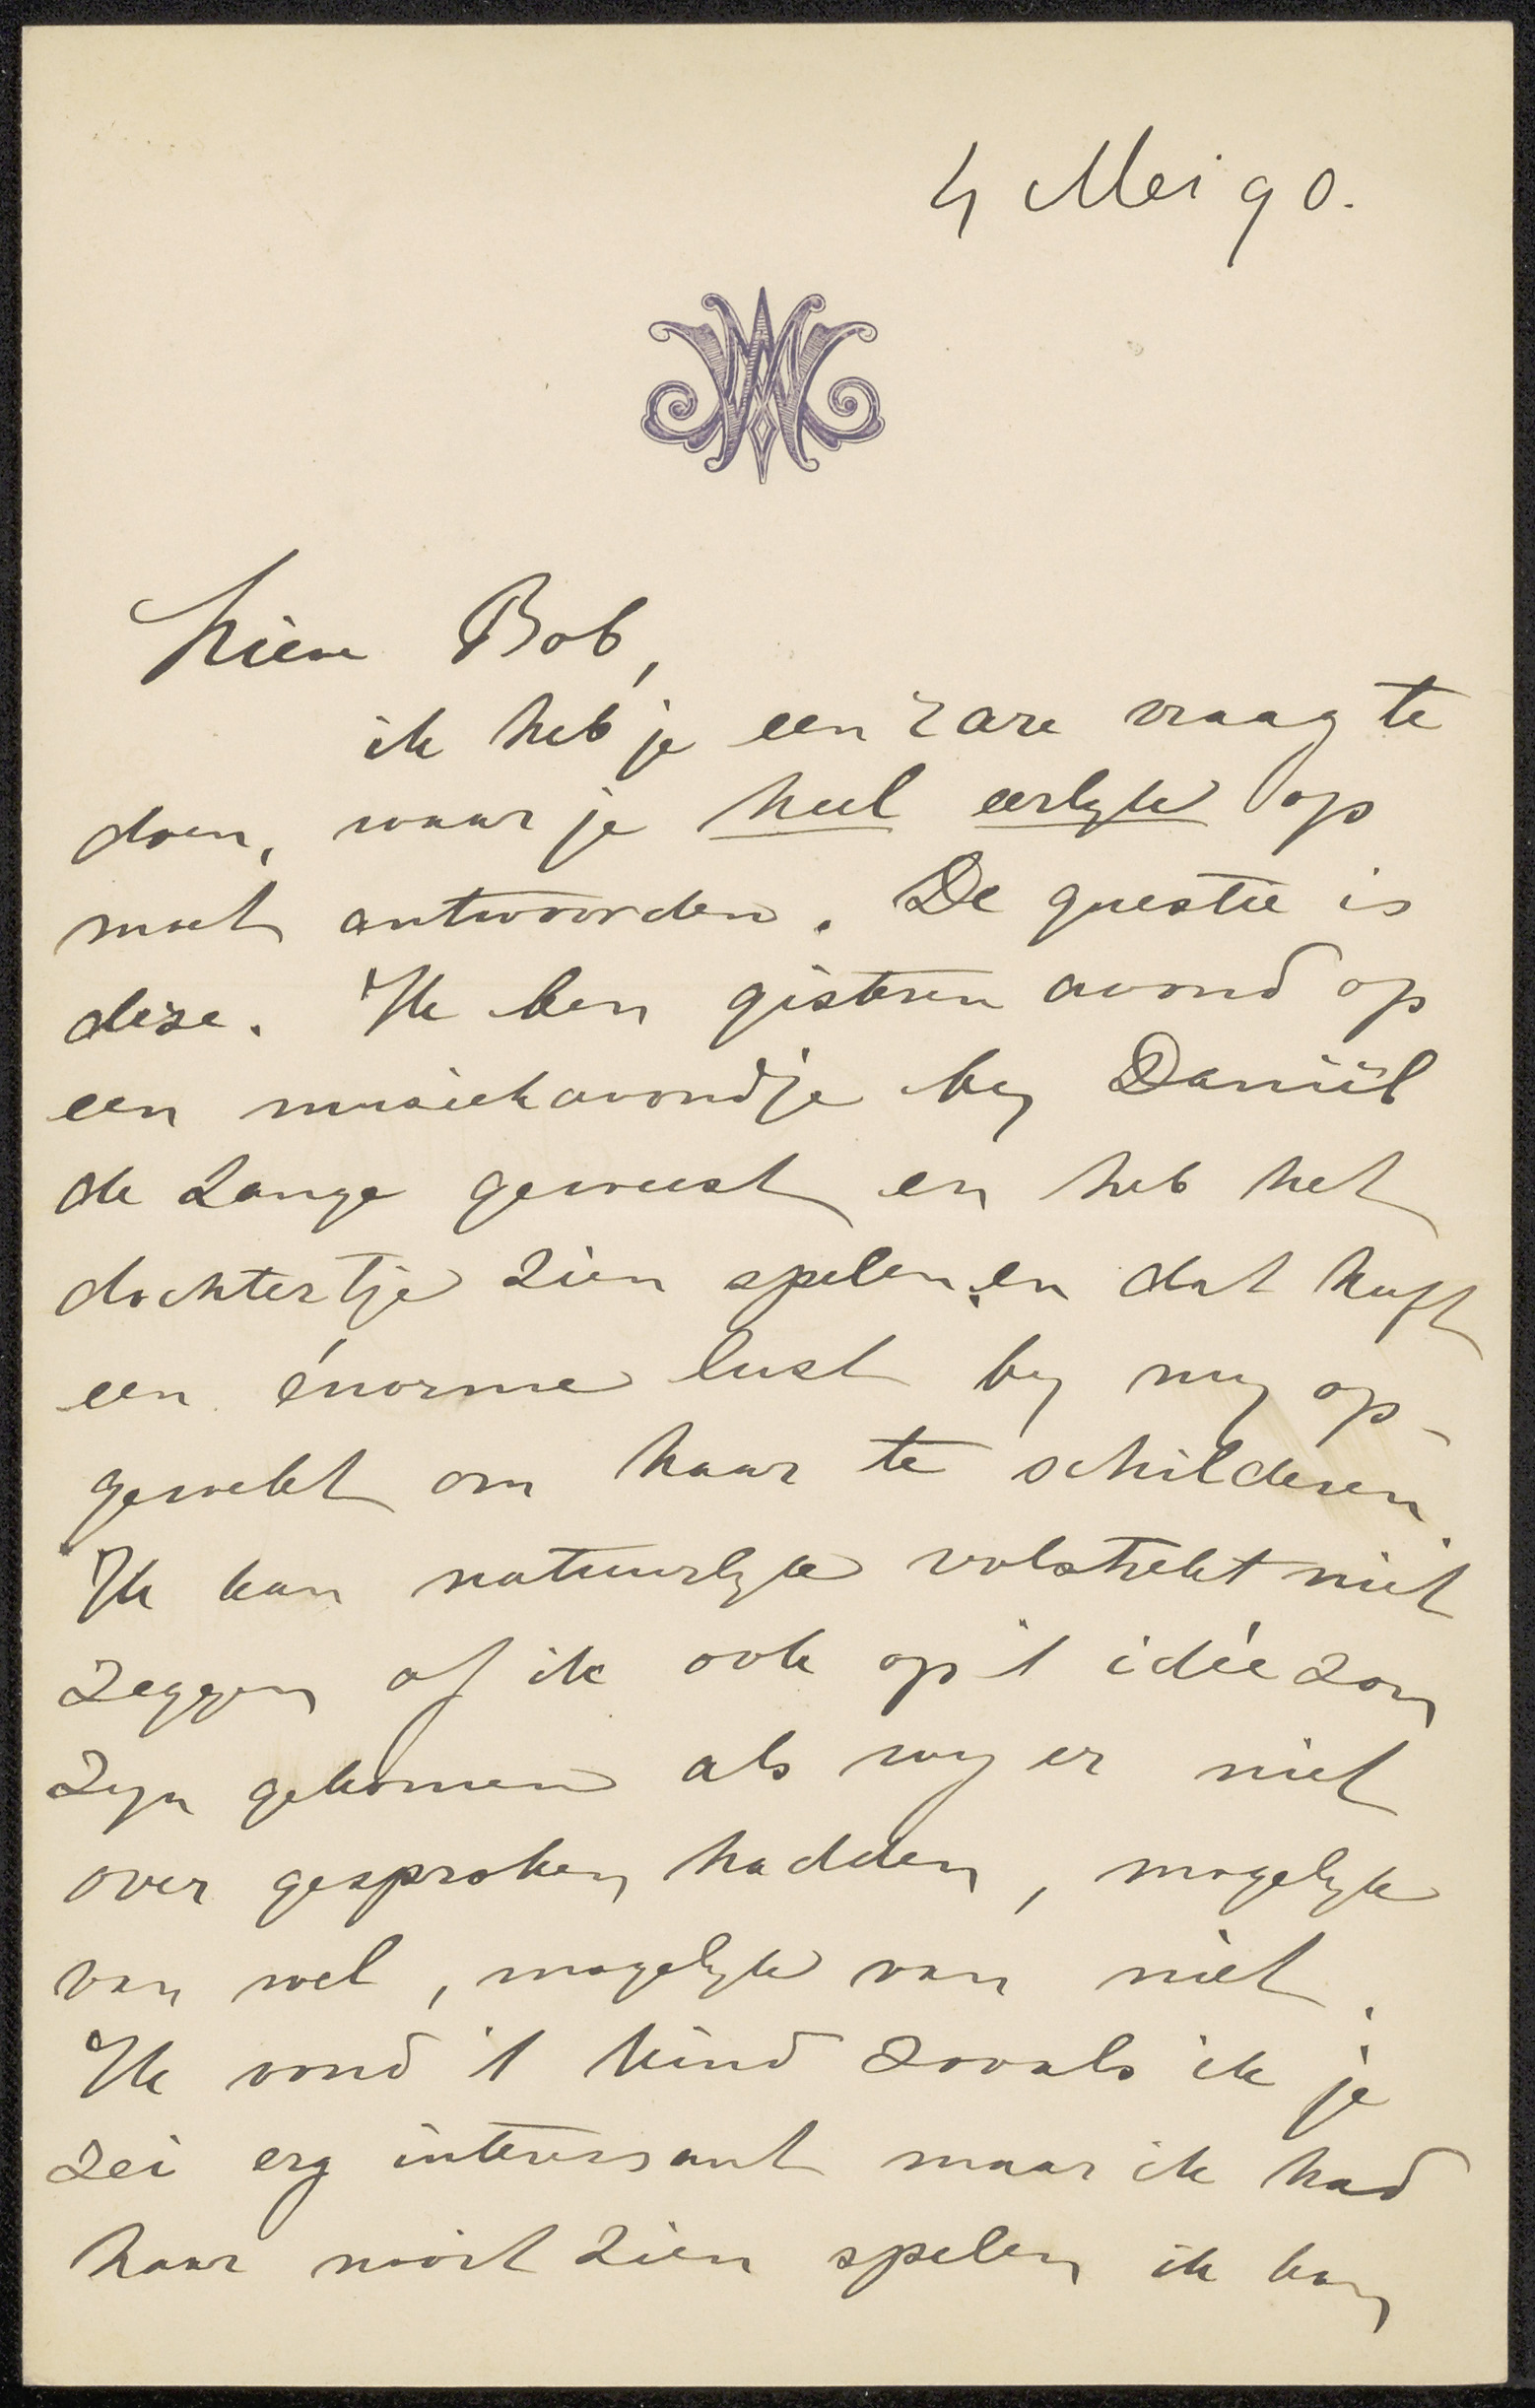 4 Mei 90.
Lieve Bob,
ik heb je een rare vraag te
doen, waar je heel eerlyk op
moet antwoorden. De questie is
deze. Ik ben gisteren avond op
een muziekavondje by Daniël
de Lange geweest en heb het
dochtertje zien spelen en dat heeft
een énorme lust by my op-
gewekt om haar te schilderen.
Ik kan natuurlyk volstrekt niet
zeggen of ik ook op 't idée zou
zyn gekomen als wy er niet
over gesproken hadden, mogelyk
van wel, mogelyk van niet.
Ik vond 't kind zooals ik je
zei erg interessant maar ik had
haar nooit zien spelen ik kan